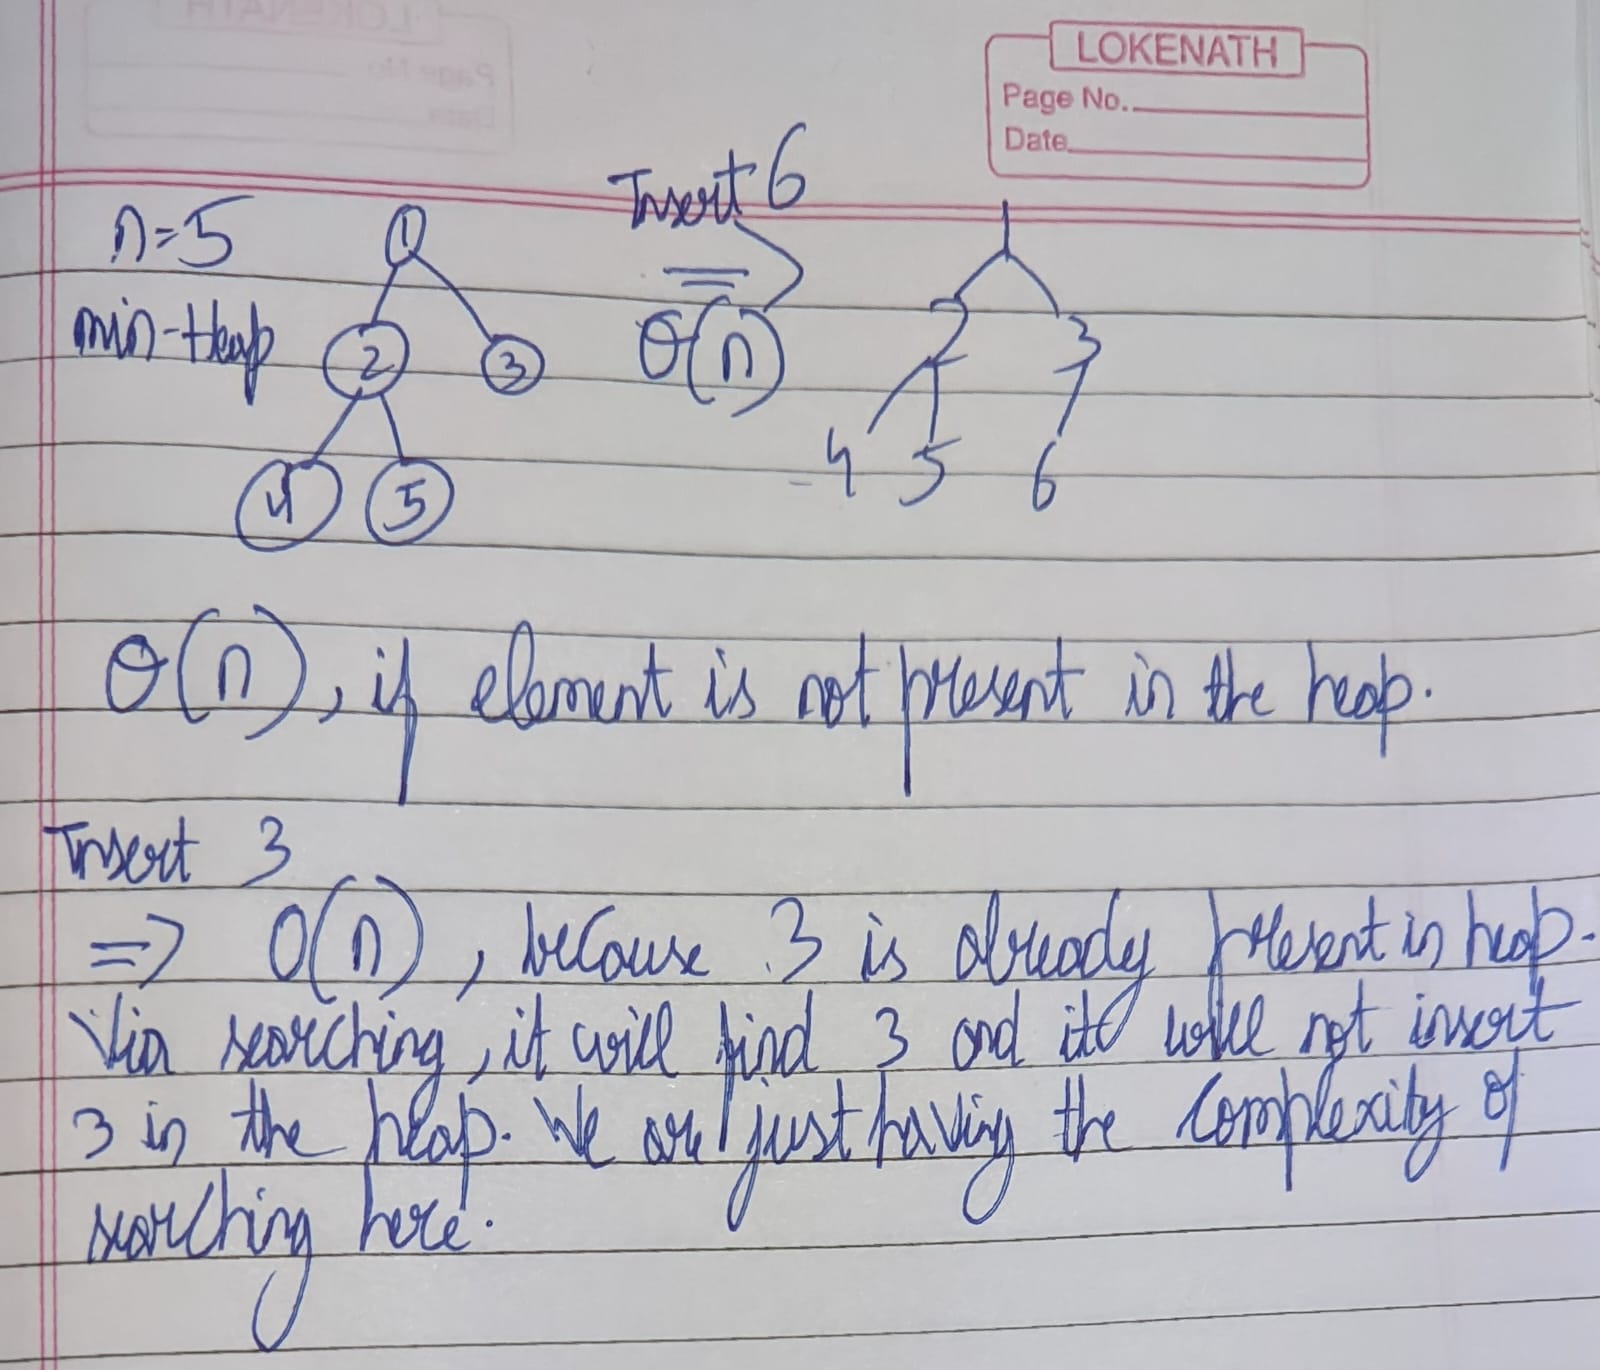 LOKENATH
Page No.
Date
Insert 6
n=5
min-Heap
1
2
3
4
5
=>
θ(n)
1
2
3
4
5
6
θ(n), if element is not present in the heap.
Insert 3
=> O(n), because 3 is already present in heap.
Via searching, it will find 3 and it will not insert
3 in the heap. We are just having the complexity of
searching here.